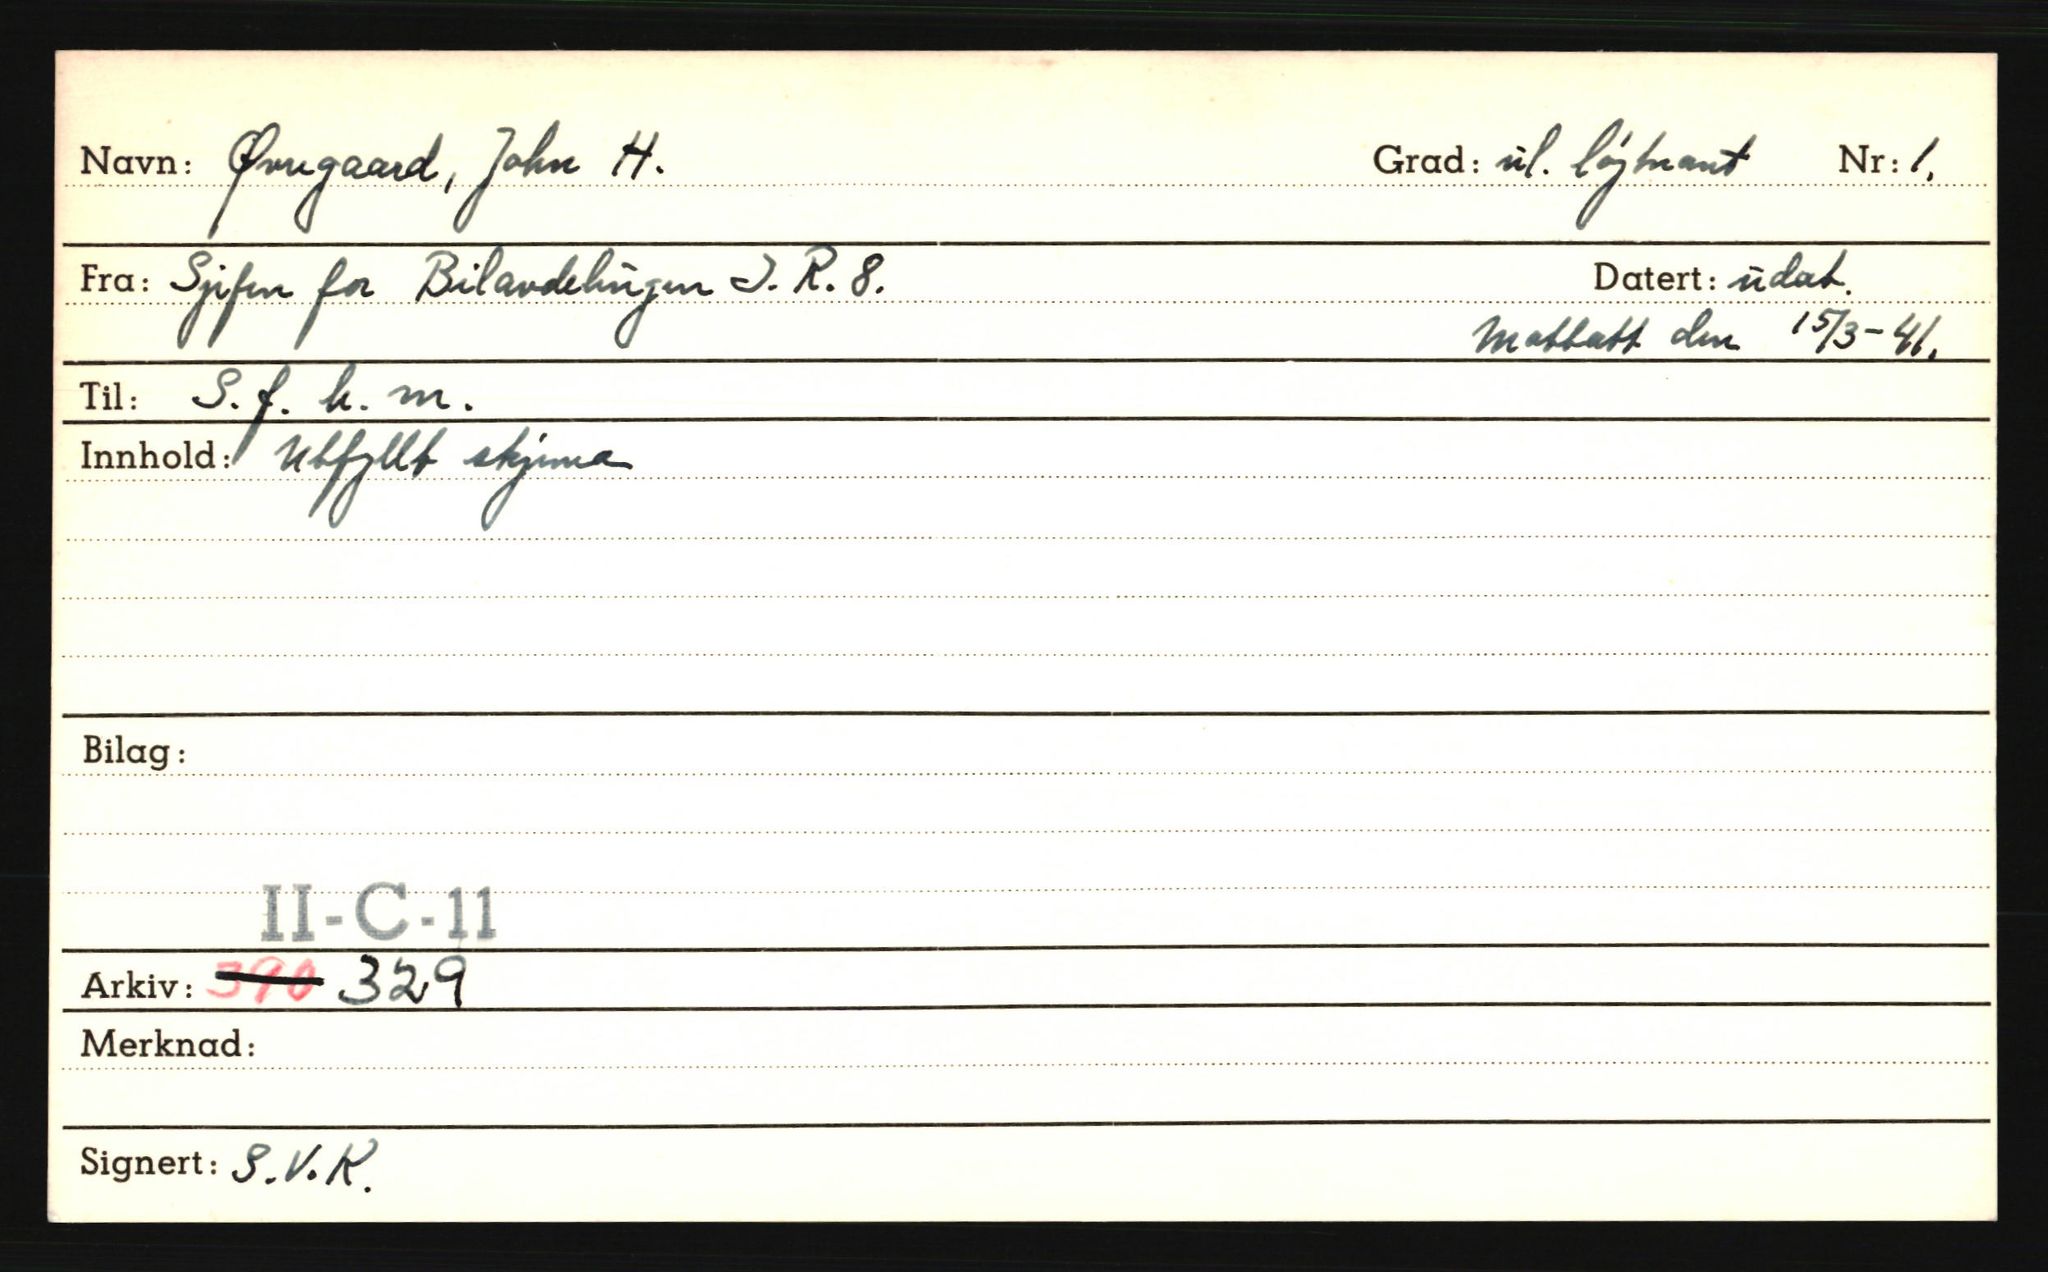 Navn: Øvregaard, John H. Grad: ul. løytnant Nr: 1.
Fra: Sjefen for Bilavdelingen I. R. 8. Datert: udat.
Mottatt den 15/3-41.
Til: S. f. k. m.
Innhold: Utfyllt skjema
Bilag:
II-C-11
Arkiv: 390 329
Merknad:
Signert: S.V.K.